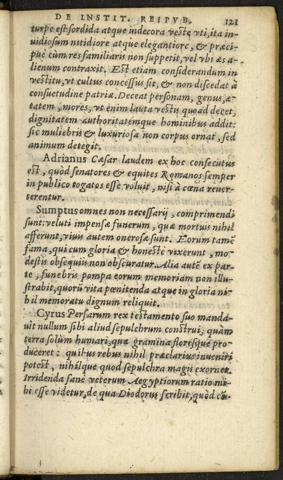 DE INSTIT. REIPVB. 121
turpe est sordida atque indecora veste vti, ita in-
uidiosum nitidiore atque elegantiore, & præci-
puè cùm res familiaris non suppetit, vel vbi æs a-
lienum contraxit. Est etiam considerandum in
vestitu, vt cultus concessus sit, & non discedat à
consuetudine patriæ. Deceat personam, genus, æ-
tatem, mores, vt enim lauta vestis quod decet,
dignitatem authoritatémque hominibus addit:
sic muliebris & luxuriosa non corpus ornat, sed
animum detegit.
Adrianus Cæsar laudem ex hoc consecutus
est, quòd senatores & equites Romanos semper
in publico togatos esse voluit, nisi à cœna reuer-
terentur.
Sumptus omnes non necessarij, comprimendi
sunt: veluti impensæ funerum, quæ mortuis nihil
afferunt, viuis autem onerosæ sunt. Eorum tamē
fama, qui cum gloria & honestè vixerunt, mo-
destis obsequiis non obscuratur. Alia autē ex par-
te, funebris pompa eorum memoriam non illu-
strabit, quorū vita pœnitenda atque in gloria ni-
hil memoratu dignum reliquit.
Cyrus Persarum rex testamento suo manda-
uit nullum sibi aliud sepulchrum construi, quàm
terra solùm humari, quæ gramina florésque pro-
duceret: quibus rebus nihil præclarius inueniri
potest, nihilque quod sepulchra magis exornet.
Irridenda sanè veterum Aegyptiorum ratio mi-
hi esse videtur, de qua Diodorus scribit, quòd cū-